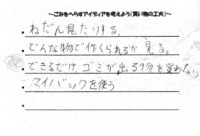 ～ごみをへらすアイディアを考えよう（買い物の工夫）～
・ねだん見たりする。
・どんな物で作くられるか見る。
・できるだけ、ゴミが出る分を買わない
・マイバックを使う